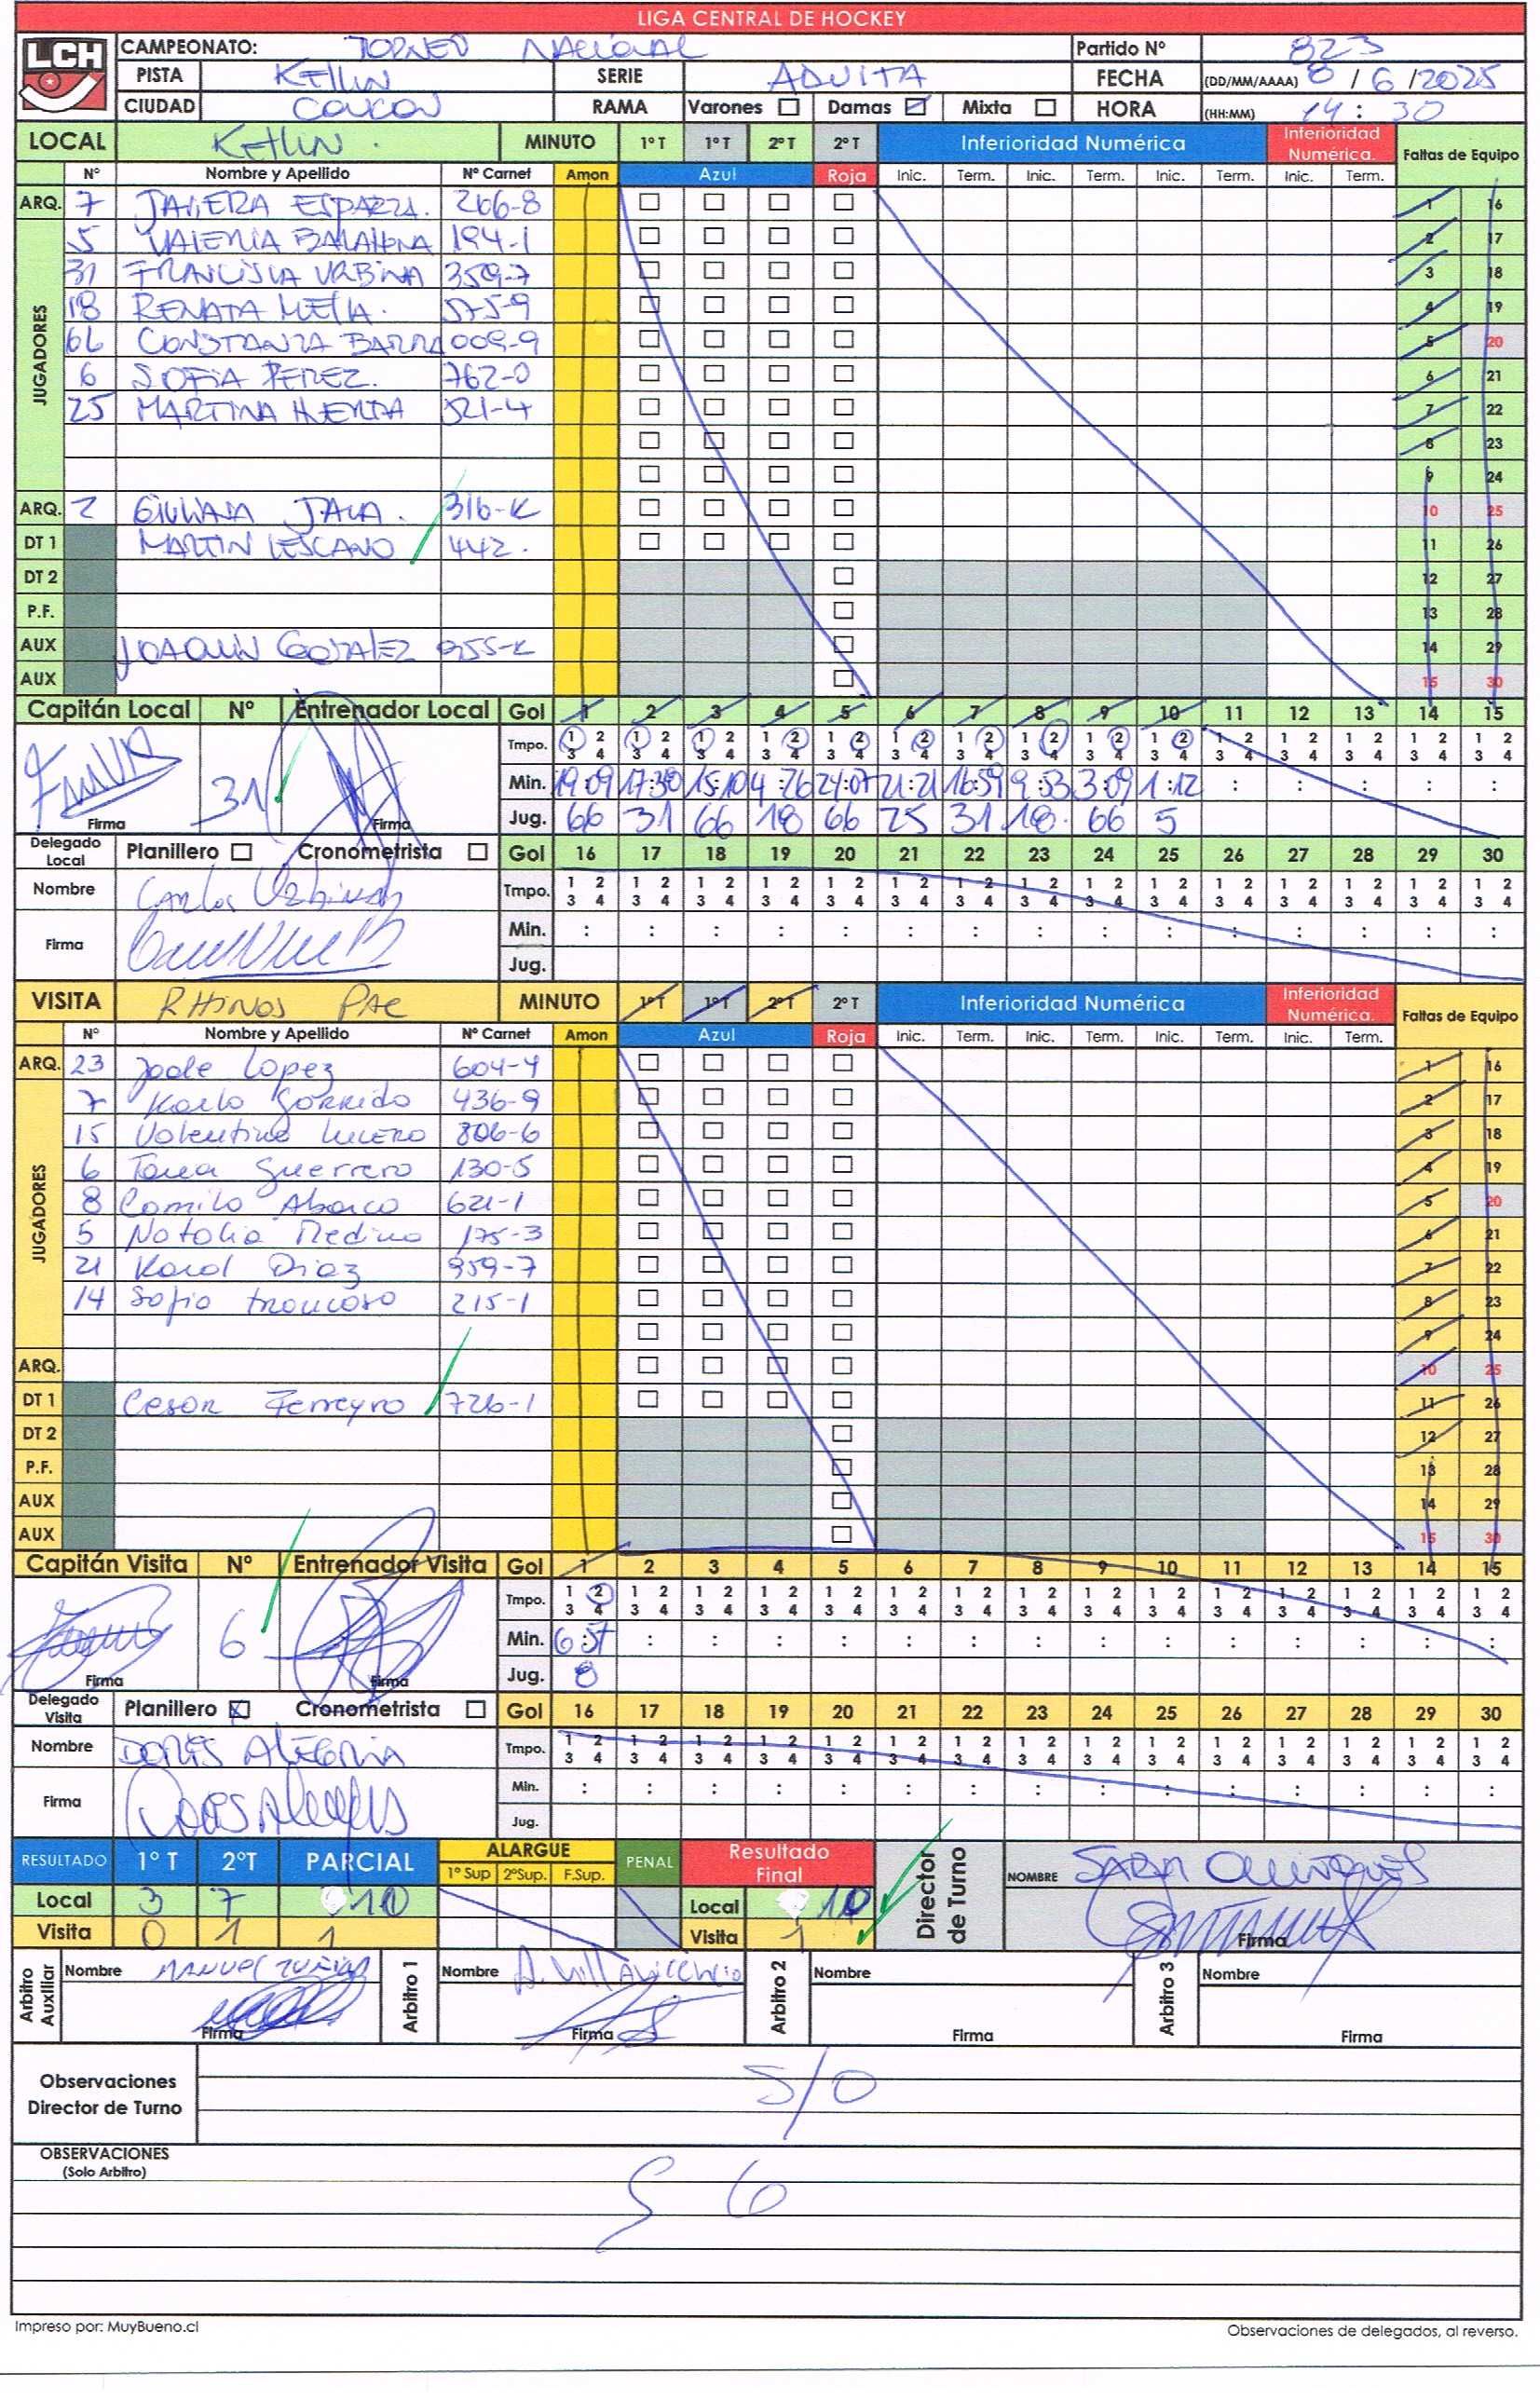 LIGA CENTRAL DE HOCKEY
LCH
CAMPEONATO: TORNEO NACIONAL Partido Nº 823
PISTA KETLIN SERIE ADULTA FECHA (DD/MM/AAAA) 8 / 6 / 2025
CIUDAD CONCON RAMA Varones Damas Mixta HORA (HH:MM) 14 : 30
LOCAL KETLIN. MINUTO 1º T 1º T 2º T 2º T Inferioridad Numérica Inferioridad Numérica. Faltas de Equipo
Nº Nombre y Apellido Nº Carnet Amon Azul Roja Inic. Term. Inic. Term. Inic. Term. Inic. Term.
ARQ. 7 JAVIERA ESPARZA. 266-8 1 16
JUGADORES
5 VALENTIA BARAHONA 194-1 2 17
31 FRANCISCA URBINA 359-7 3 18
18 RENATA MEJIA. 575-9 4 19
66 CONSTANZA BARRA 009-9 5 20
6 SOFIA PEREZ. 762-0 6 21
25 MARTINA HUERTA 521-4 7 22
8 23
9 24
ARQ. 2 GIULIANA JARA. 316-K 10 25
DT 1 MARTIN LESCANO 442. 11 26
DT 2 12 27
P.F. 13 28
AUX JOAQUIN GONZALEZ 955-K 14 29
AUX 15 30
Capitán Local Nº Entrenador Local Gol 1 2 3 4 5 6 7 8 9 10 11 12 13 14 15
Tmpo. 1 2 1 2 1 2 1 2 1 2 1 2 1 2 1 2 1 2 1 2 1 2 1 2 1 2 1 2 1 2
3 4 3 4 3 4 3 4 3 4 3 4 3 4 3 4 3 4 3 4 3 4 3 4 3 4 3 4 3 4
31 Min. 19:09 17:38 15:10 4:26 24:07 21:21 16:59 9:53 3:09 1:12 : : : : :
Firma Firma Jug. 66 31 66 18 66 25 31 18. 66 5
Delegado Local Planillero Cronometrista Gol 16 17 18 19 20 21 22 23 24 25 26 27 28 29 30
Nombre Carlos Urbina Tmpo. 1 2 1 2 1 2 1 2 1 2 1 2 1 2 1 2 1 2 1 2 1 2 1 2 1 2 1 2 1 2
3 4 3 4 3 4 3 4 3 4 3 4 3 4 3 4 3 4 3 4 3 4 3 4 3 4 3 4 3 4
Firma Min. : : : : : : : : : : : : : : :
Jug.
VISITA RHINOS PAC MINUTO 1º T 1º T 2º T 2º T Inferioridad Numérica Inferioridad Numérica. Faltas de Equipo
Nº Nombre y Apellido Nº Carnet Amon Azul Roja Inic. Term. Inic. Term. Inic. Term. Inic. Term.
ARQ. 23 Lopez 604-4 1 16
JUGADORES
7 Karla Garrido 436-9 2 17
15 Valentina Lucero 806-6 3 18
6 Tania Guerrero 130-5 4 19
8 Camila Abarca 621-1 5 20
5 Natalia Medina 175-3 6 21
21 Karol Diaz 959-7 7 22
14 Sofia Troncoso 215-1 8 23
9 24
ARQ. 10 25
DT 1 Cesar Ferreyro 726-1 11 26
DT 2 12 27
P.F. 13 28
AUX 14 29
AUX 15 30
Capitán Visita Nº Entrenador Visita Gol 1 2 3 4 5 6 7 8 9 10 11 12 13 14 15
Tmpo. 1 2 1 2 1 2 1 2 1 2 1 2 1 2 1 2 1 2 1 2 1 2 1 2 1 2 1 2 1 2
3 4 3 4 3 4 3 4 3 4 3 4 3 4 3 4 3 4 3 4 3 4 3 4 3 4 3 4 3 4
6 Min. 6:57 : : : : : : : : : : : : : :
Firma Firma Jug. 8
Delegado Visita Planillero Cronometrista Gol 16 17 18 19 20 21 22 23 24 25 26 27 28 29 30
Nombre DORIS ALEGRIA Tmpo. 1 2 1 2 1 2 1 2 1 2 1 2 1 2 1 2 1 2 1 2 1 2 1 2 1 2 1 2 1 2
3 4 3 4 3 4 3 4 3 4 3 4 3 4 3 4 3 4 3 4 3 4 3 4 3 4 3 4 3 4
Firma Min. : : : : : : : : : : : : : : :
Jug.
RESULTADO 1º T 2ºT PARCIAL ALARGUE 1º Sup 2ºSup. F.Sup. PENAL Resultado Final Director de Turno NOMBRE SARA
Local 3 7 10 Local 10
Visita 0 1 1 Visita 1 Firma
Arbitro Auxiliar Nombre MANUEL ZUÑIGA Arbitro 1 Nombre A. Villavicencio Arbitro 2 Nombre Arbitro 3 Nombre
Firma Firma Firma Firma
Observaciones Director de Turno S/O
OBSERVACIONES
(Solo Arbitro)
Impreso por: MuyBueno.cl Observaciones de delegados, al reverso.